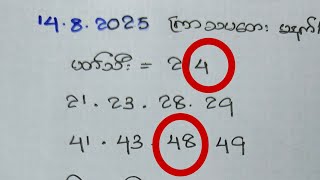 14.8.2025 ကြာသပတေး မနက်
ပတ်သီး = 2 4
21 . 23 . 28 . 29
41 . 43 . 48 49